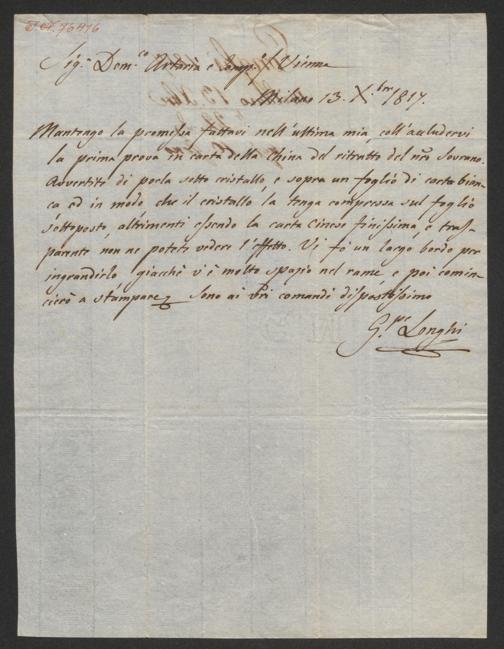 Sig.ri Dom.co Artaria e Comp.i Vienna
Milano 13. X.bre 1817.
Mantengo la promessa fattavi nell'ultima mia, coll'accludervi
la prima prova in carta della China del ritratto del nro Sovrano.
Avvertite di porla sotto cristallo, e sopra un foglio di carta bian-
ca ed in modo che il cristallo la tenga compressa sul foglio
sottoposto, altrimenti essendo la carta cinese finissima, e tras-
parente non ne potete vedere l'effetto. Vi fò un largo bordo per
ingrandirlo giacchè v'è molto spazio nel rame, e poi comin-
cierò a stampare. Sono ai vri comandi dispostissimo
G.pe Longhi